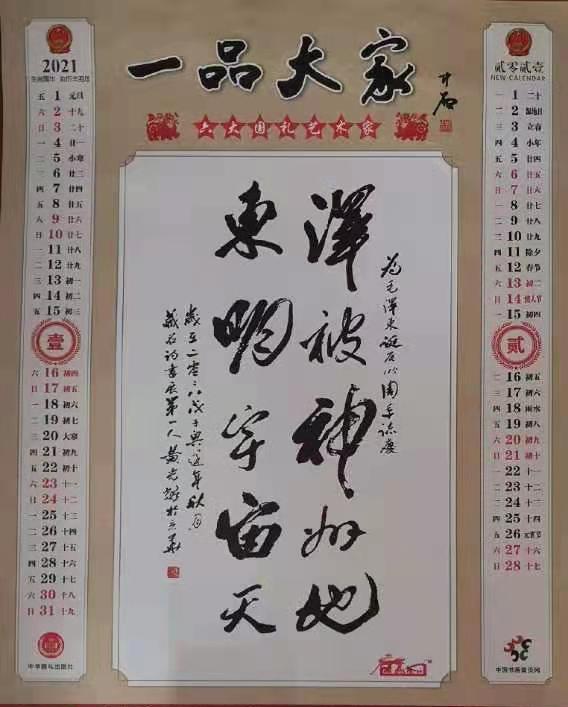 一品大家
六大国礼艺术家
2021
五 1 元旦
六 2 十九
日 3 二十
一 4 廿一
二 5 小寒
三 6 廿三
四 7 廿四
五 8 廿五
六 9 廿六
日 10 廿七
一 11 廿八
二 12 廿九
三 13 初一
四 14 初二
五 15 初三
壹
六 16 初四
日 17 初五
一 18 初六
二 19 初七
三 20 大寒
四 21 初九
五 22 初十
六 23 十一
日 24 十二
一 25 十三
二 26 十四
三 27 十五
四 28 十六
五 29 十七
六 30 十八
日 31 十九
澤被神州地
東明宇宙天
为毛澤东誕辰周年誌慶
藏名詩書展第一人黄光
贰零贰壹
NEW CALENDAR
一 1 二十
二 2 湿地日
三 3 立春
四 4 小年
五 5 廿四
六 6 廿五
日 7 廿六
一 8 廿七
二 9 廿八
三 10 廿九
四 11 除夕
五 12 春节
六 13 初二
日 14 情人节
一 15 初四
贰
二 16 初五
三 17 初六
四 18 雨水
五 19 初八
六 20 初九
日 21 初十
一 22 十一
二 23 十二
三 24 十三
四 25 十四
五 26 元宵节
六 27 十六
日 28 十七